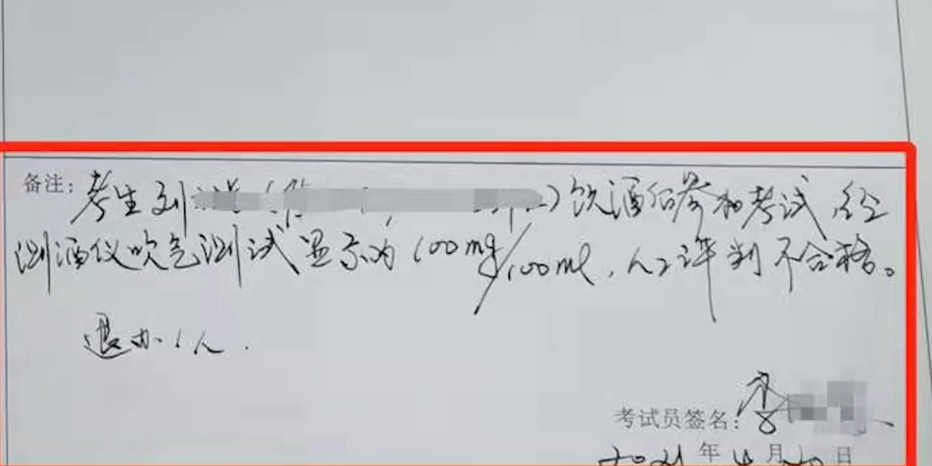 备注: 考生刘 饮酒后参加考试,经
测酒仪吹气测试显示为100mg/100ml,人工评判不合格。
退办1人.
考试员签名: 李
2021年4月20日